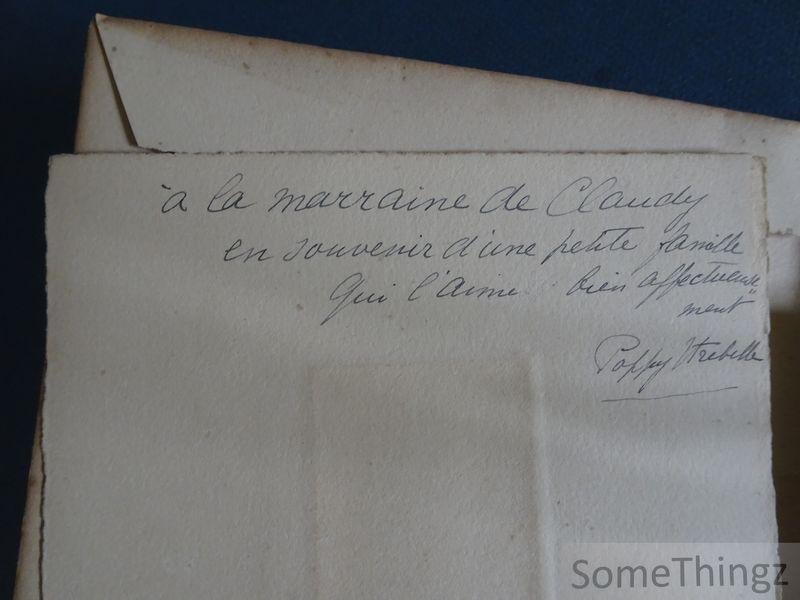 à la marraine de Claudy
en souvenir d'une petite famille
qui l'aime bien affectueuse"
ment
Poppy Strebelle
SomeThingz